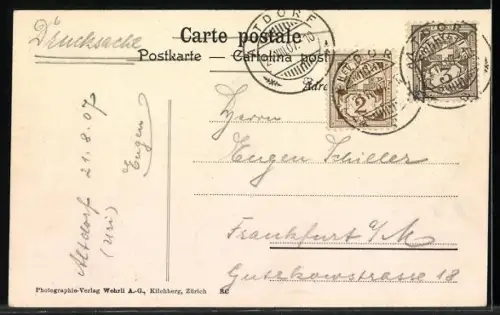 Drucksache
Carte postale
Postkarte — Cartolina post
ALTDORF
Adre
2
3
Herrn
Eugen Schiller
Frankfurt a/M
Gutzkowstrasse 18
Altdorf 21.8.07
(Uri)
Eugen
Photographie-Verlag Wehrli A.-G., Kilchberg, Zürich